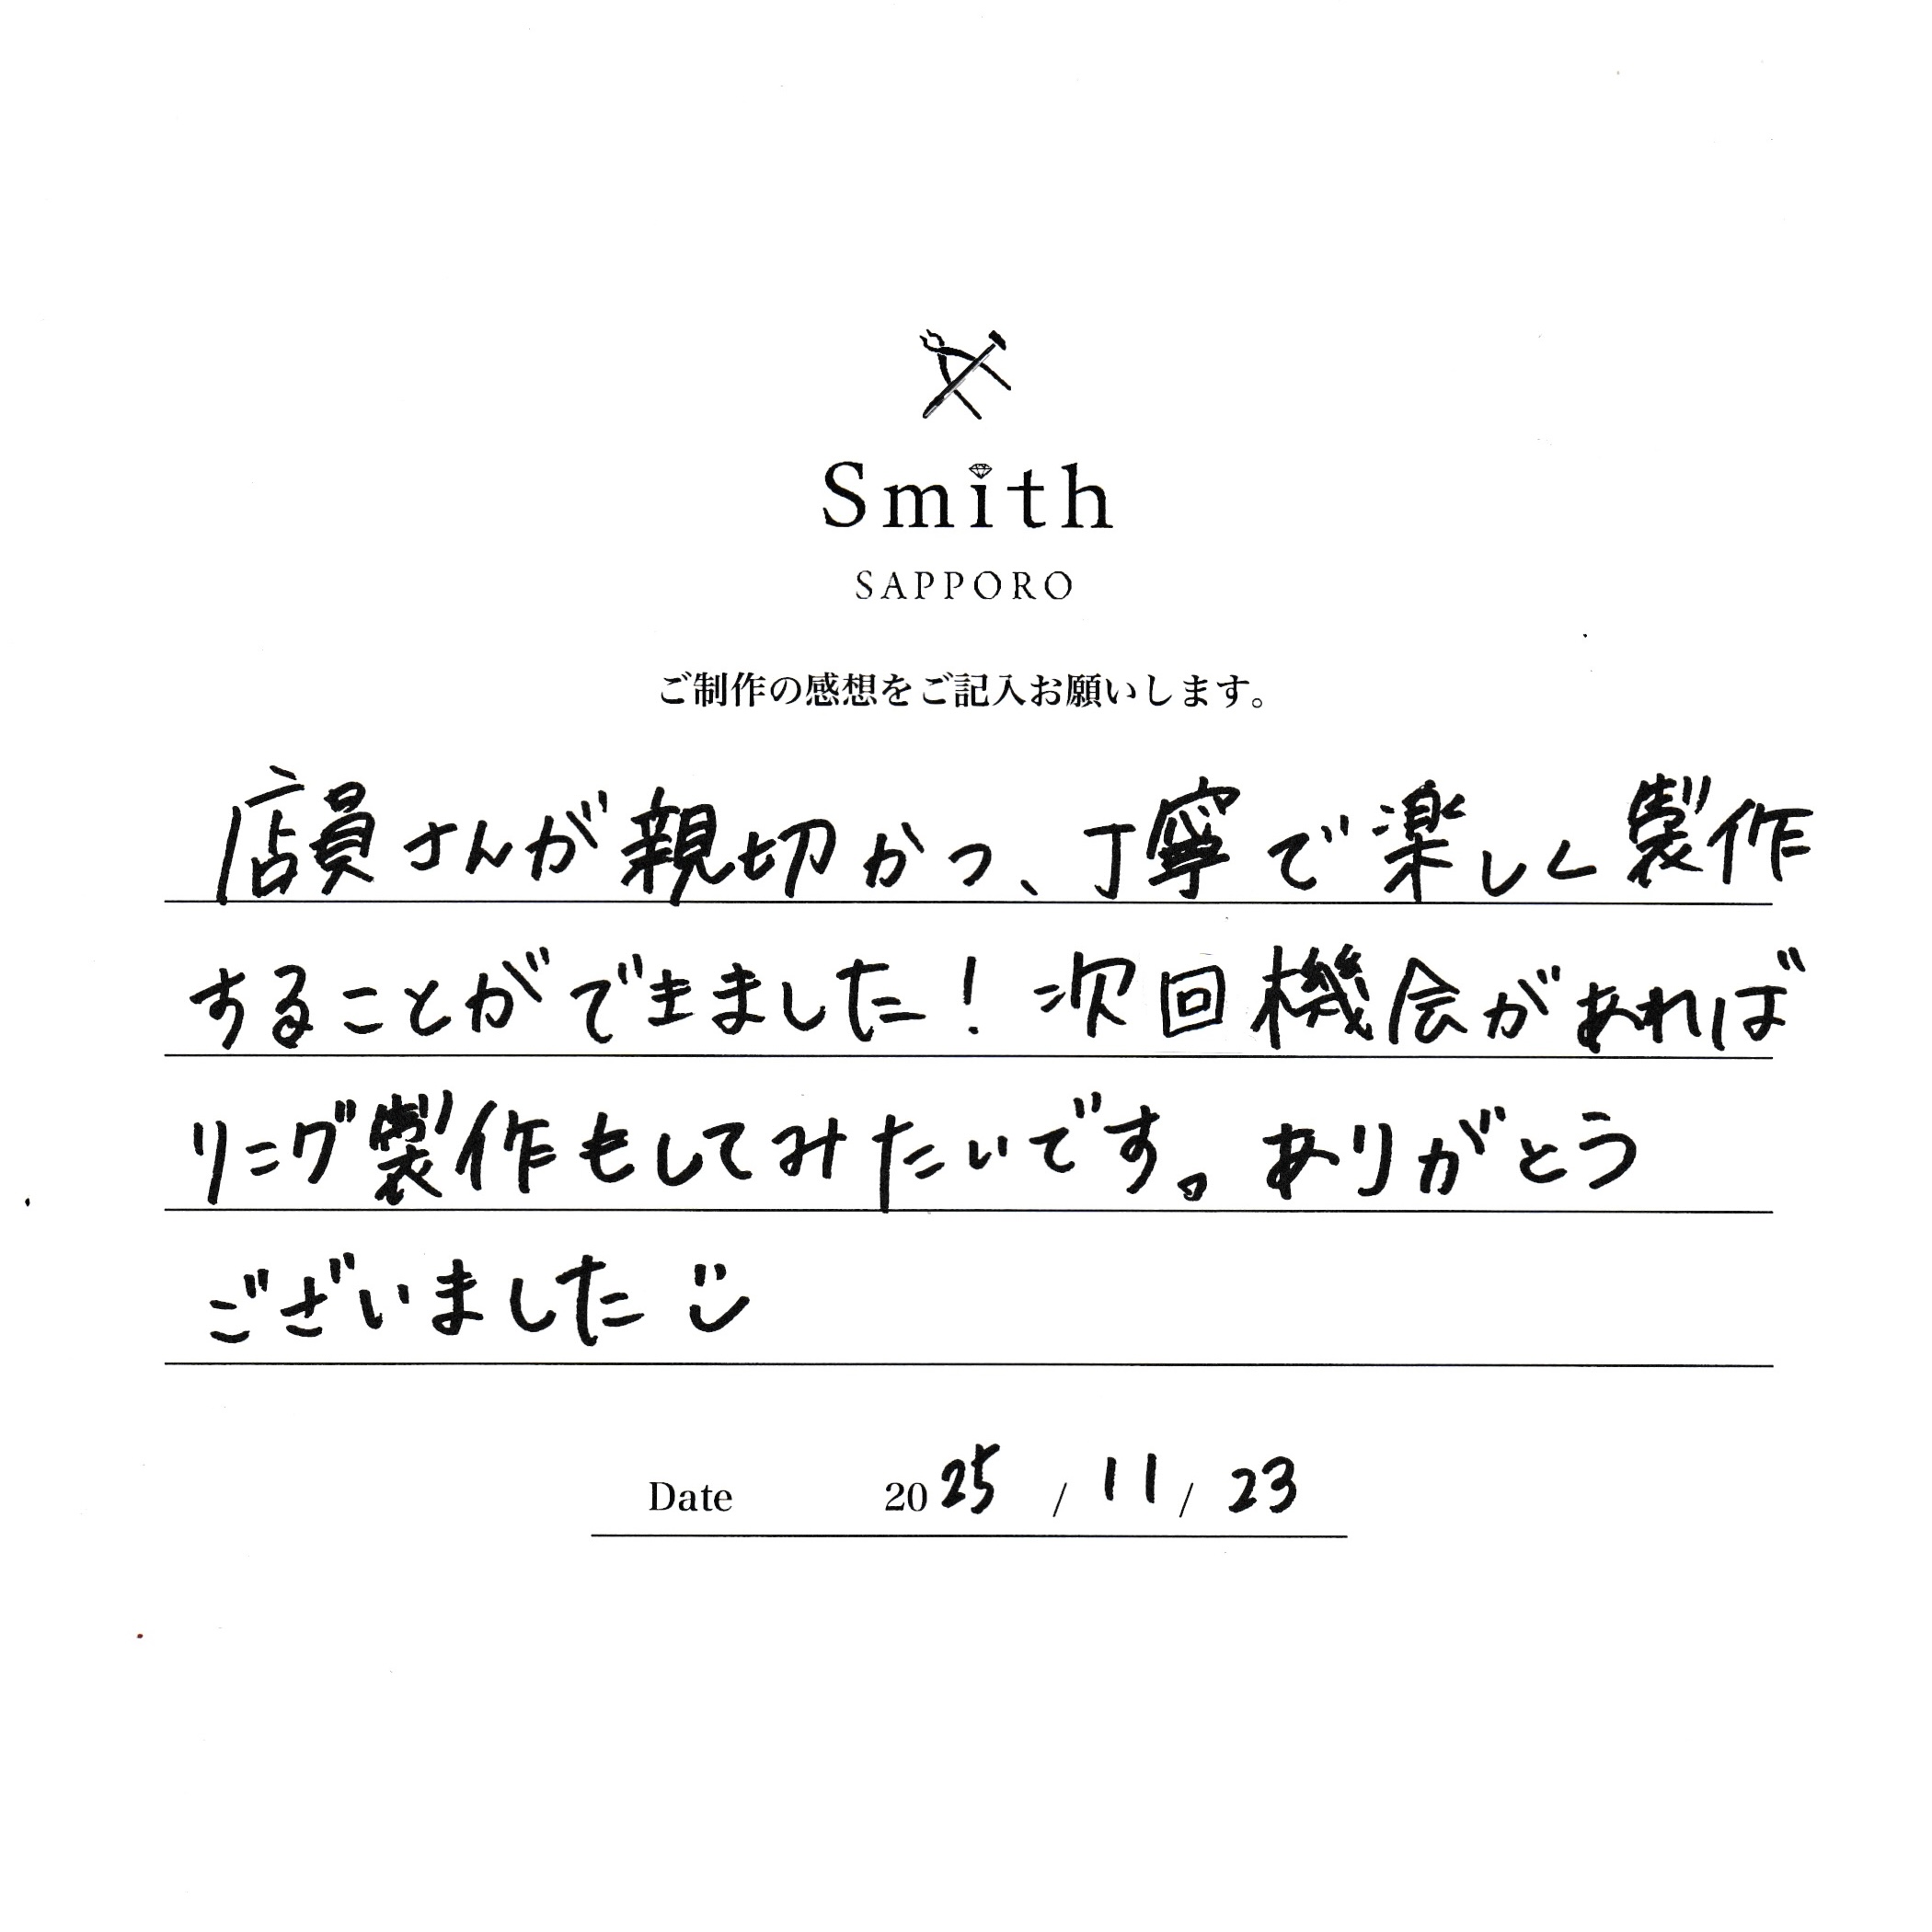 Smith
SAPPORO
ご制作の感想をご記入お願いします。
店員さんが親切かつ、丁寧で楽しく製作
することができました！次回機会があれば
リング製作もしてみたいです。ありがとう
ございました
Date 2025 / 11 / 23